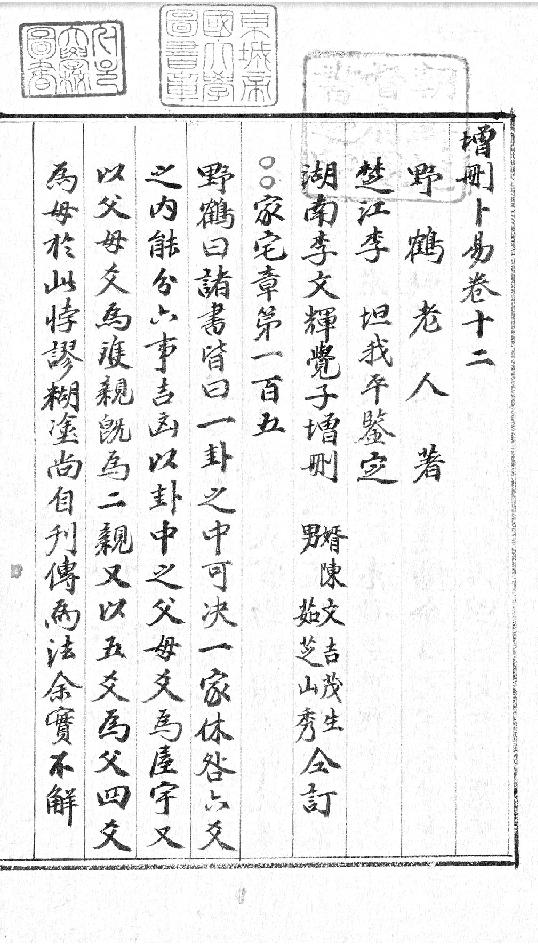 京城帝
國大學
圖書章
增刪卜易卷十二
野鶴老人　著
楚江李　坦我平鑒定
湖南李文輝覺子增刪　婿陳文吉茂生　男　茹芝山秀　仝訂
○○家宅章第一百五
野鶴曰諸書皆曰一卦之中可决一家休咎六爻
之內能分六事吉凶以卦中之父母爻為屋宇又
以父母爻為雙親既為二親又以五爻為父四爻
為母於此悖謬糊塗尚自刊傳為法余實不解